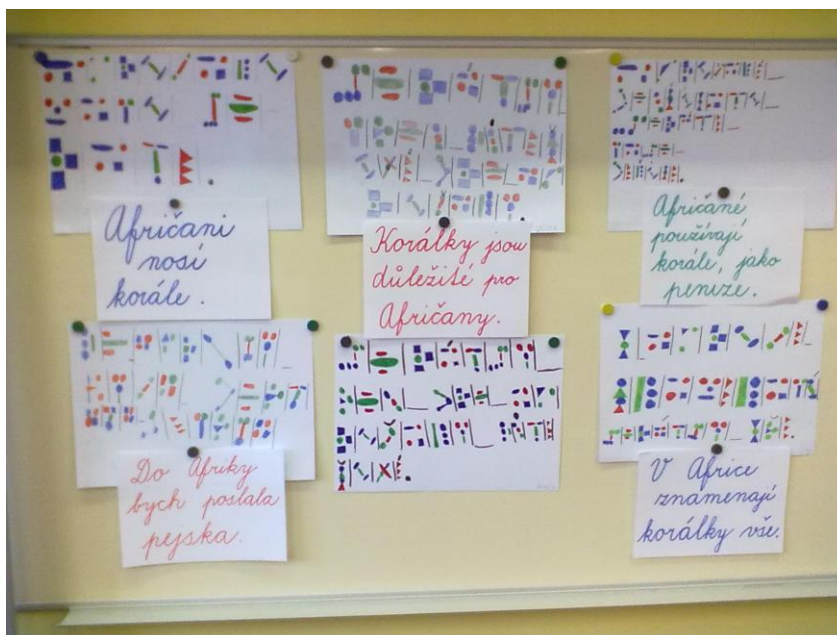 Afričani
nosí
korále.
Korálky jsou
důležité pro
Afričany.
Afričané
používají
korále, jako
peníze.
Do Afriky
bych poslala
pejska.
V Africe
znamenají
korálky vše.